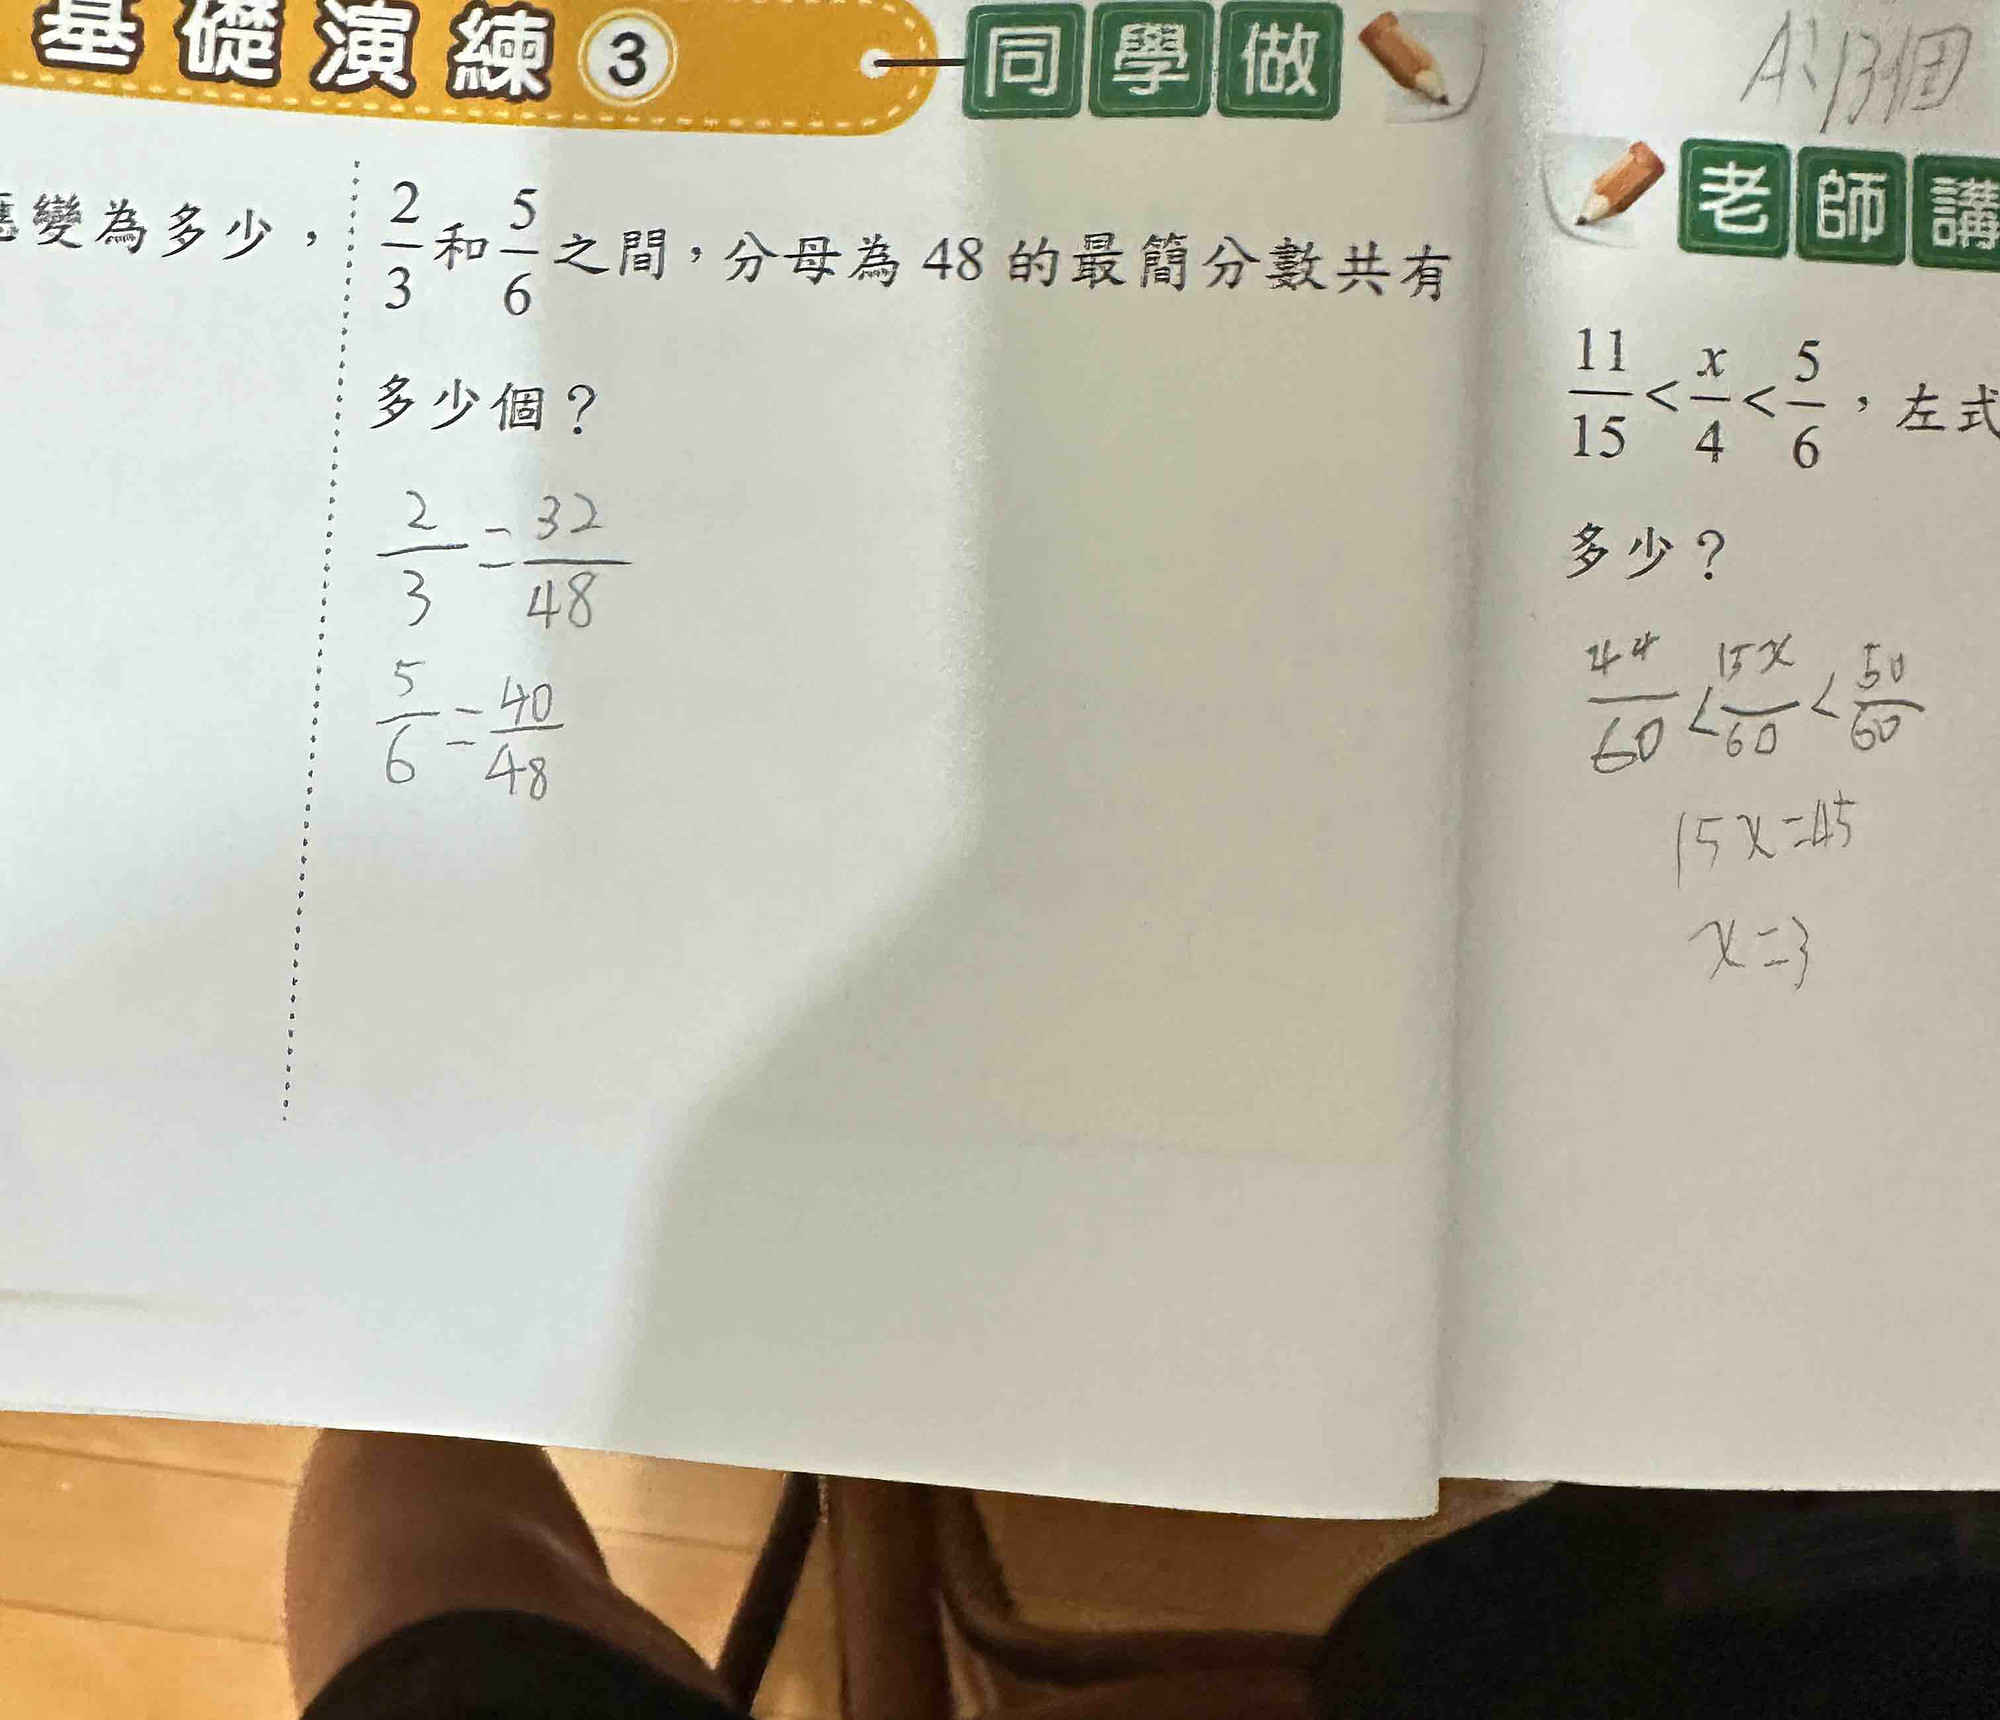 基礎演練③ 同學做
變為多少，
2/3 和 5/6 之間，分母為 48 的最簡分數共有
多少個？
2/3 = 32/48
5/6 = 40/48
老師講
11/15 < x/4 < 5/6，左式
多少？
44/60 < 15x/60 < 50/60
15x=45
x=3